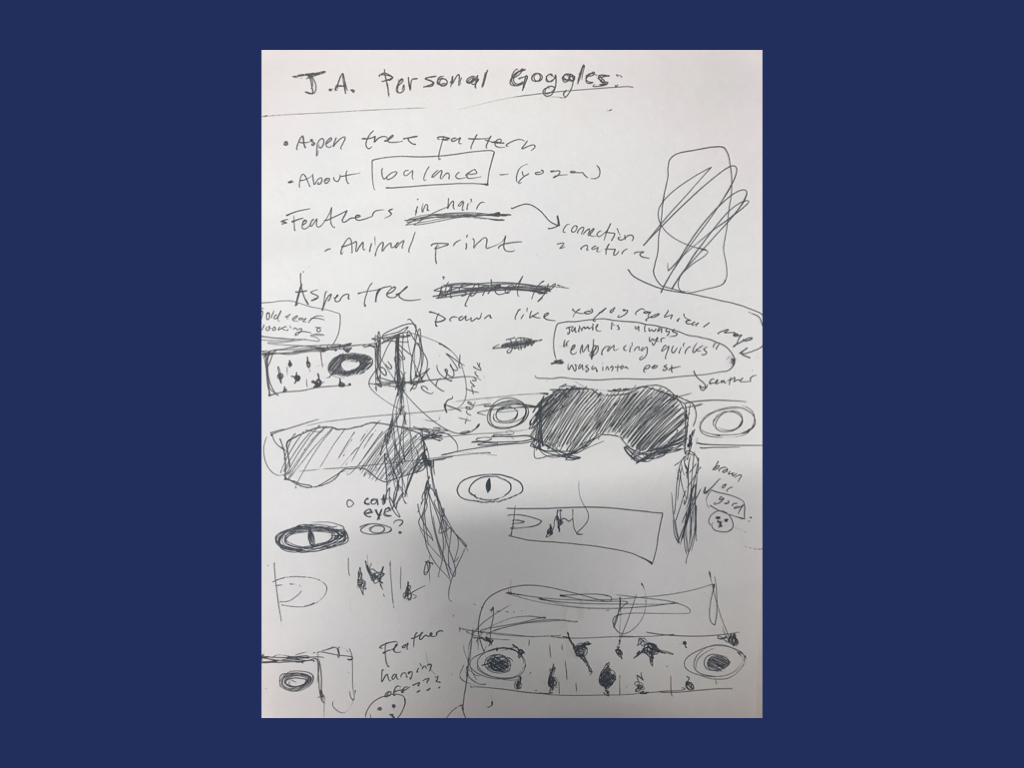 J.A. Personal Goggles:
• Aspen tree pattern
• About balance - (yoga)
• Feathers in hair
connection
2 nature
- Animal print
Aspen tree
Drawn like topographical map
old & earf
looking
Jamie is always
her
"embracing quirks"
Washington post
feather
tree trunk
brown
or
gold
cat
eye
?
Feather
hanging
off???